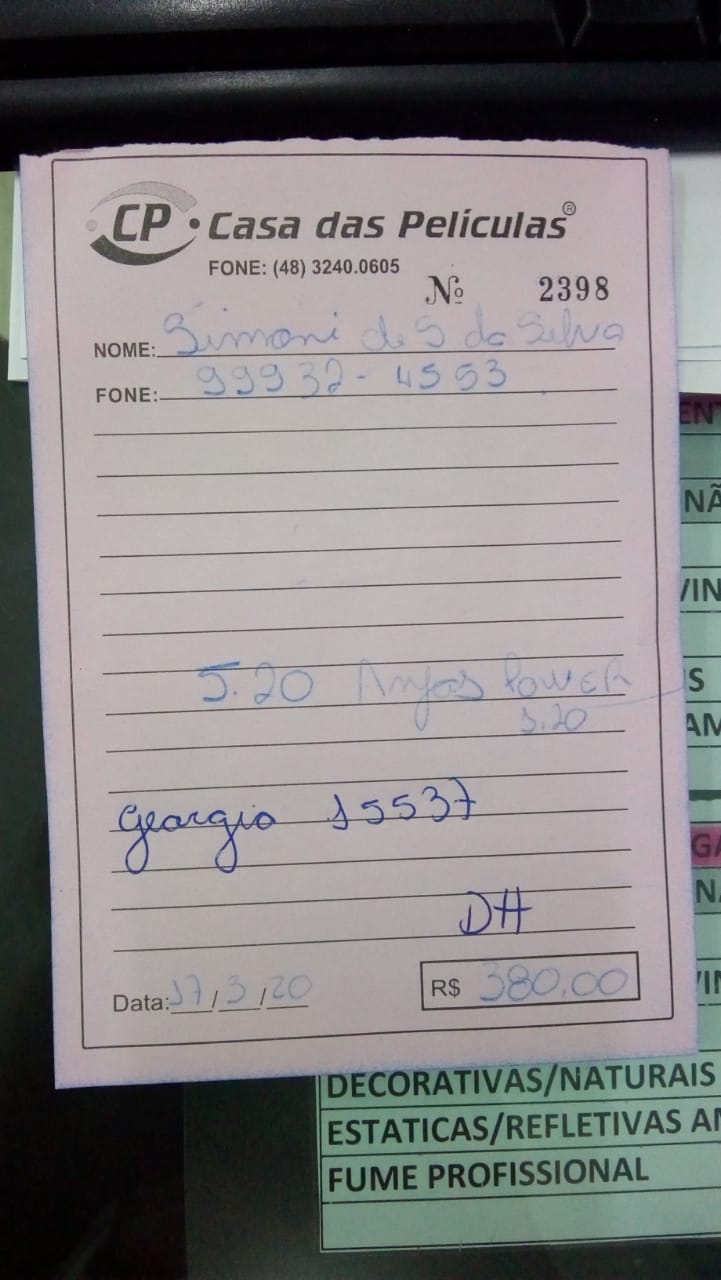 CP • Casa das Películas®
FONE: (48) 3240.0605
Nº 2398
NOME: Simoni de S da Silva
FONE: 99932-4553
5.20 Anjos Power
5.20
Georgio 15537
DH
Data: 17/3/20 R$ 380,00
ENT
NÃ
VIN
S
AM
GA
NA
VIN
DECORATIVAS/NATURAIS
ESTATICAS/REFLETIVAS AN
FUME PROFISSIONAL